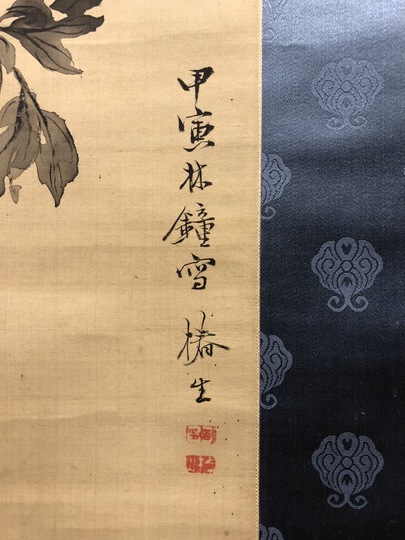 甲寅林鐘雪椿生